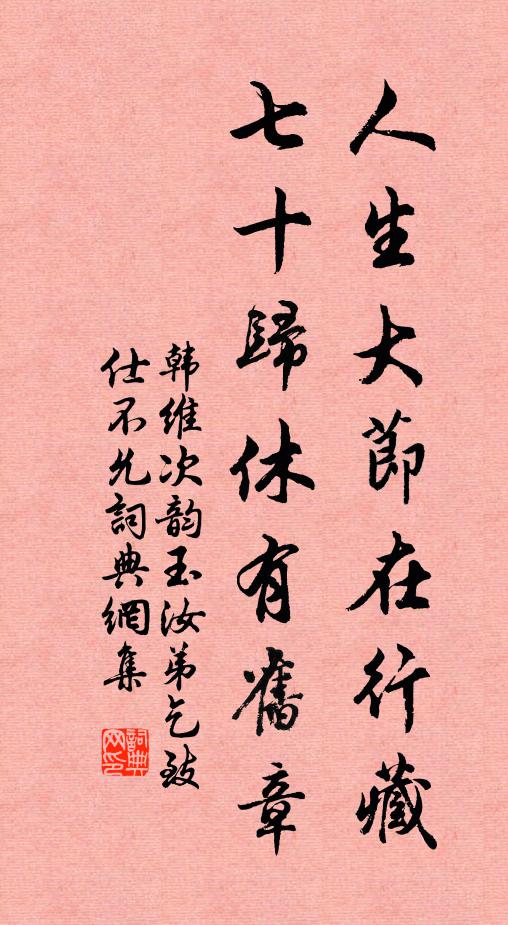 人生大節在行藏
七十歸休有舊章
韩维次韵玉汝弟乞致
仕不允詞典網集
詞典网印